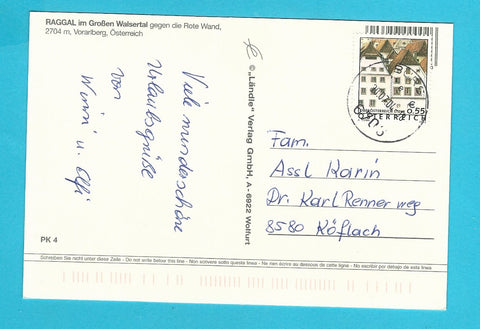 RAGGAL im Großen Walsertal gegen die Rote Wand,
2704 m, Vorarlberg, Österreich
Viele wunderschöne
Urlaubsgrüße
von
Winni u. Elfi
© „Ländle“ Verlag GmbH, A-6922 Wolfurt
€ 0.55
ÖSTERREICH
Fam.
Assl Karin
Dr. Karl Renner weg
8580 Köflach
PK 4
Schreiben Sie nicht unter dieser Zeile - Do not write below this line - Non scrivere sotto questa linea - Ne rien écrire au dessous de cette ligne - No escribir por debajo de esta linea